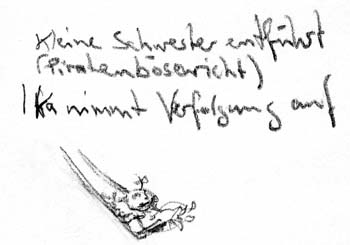 Kleine Schwester entführt
(Piratenbösewicht)
nimmt Verfolgung auf